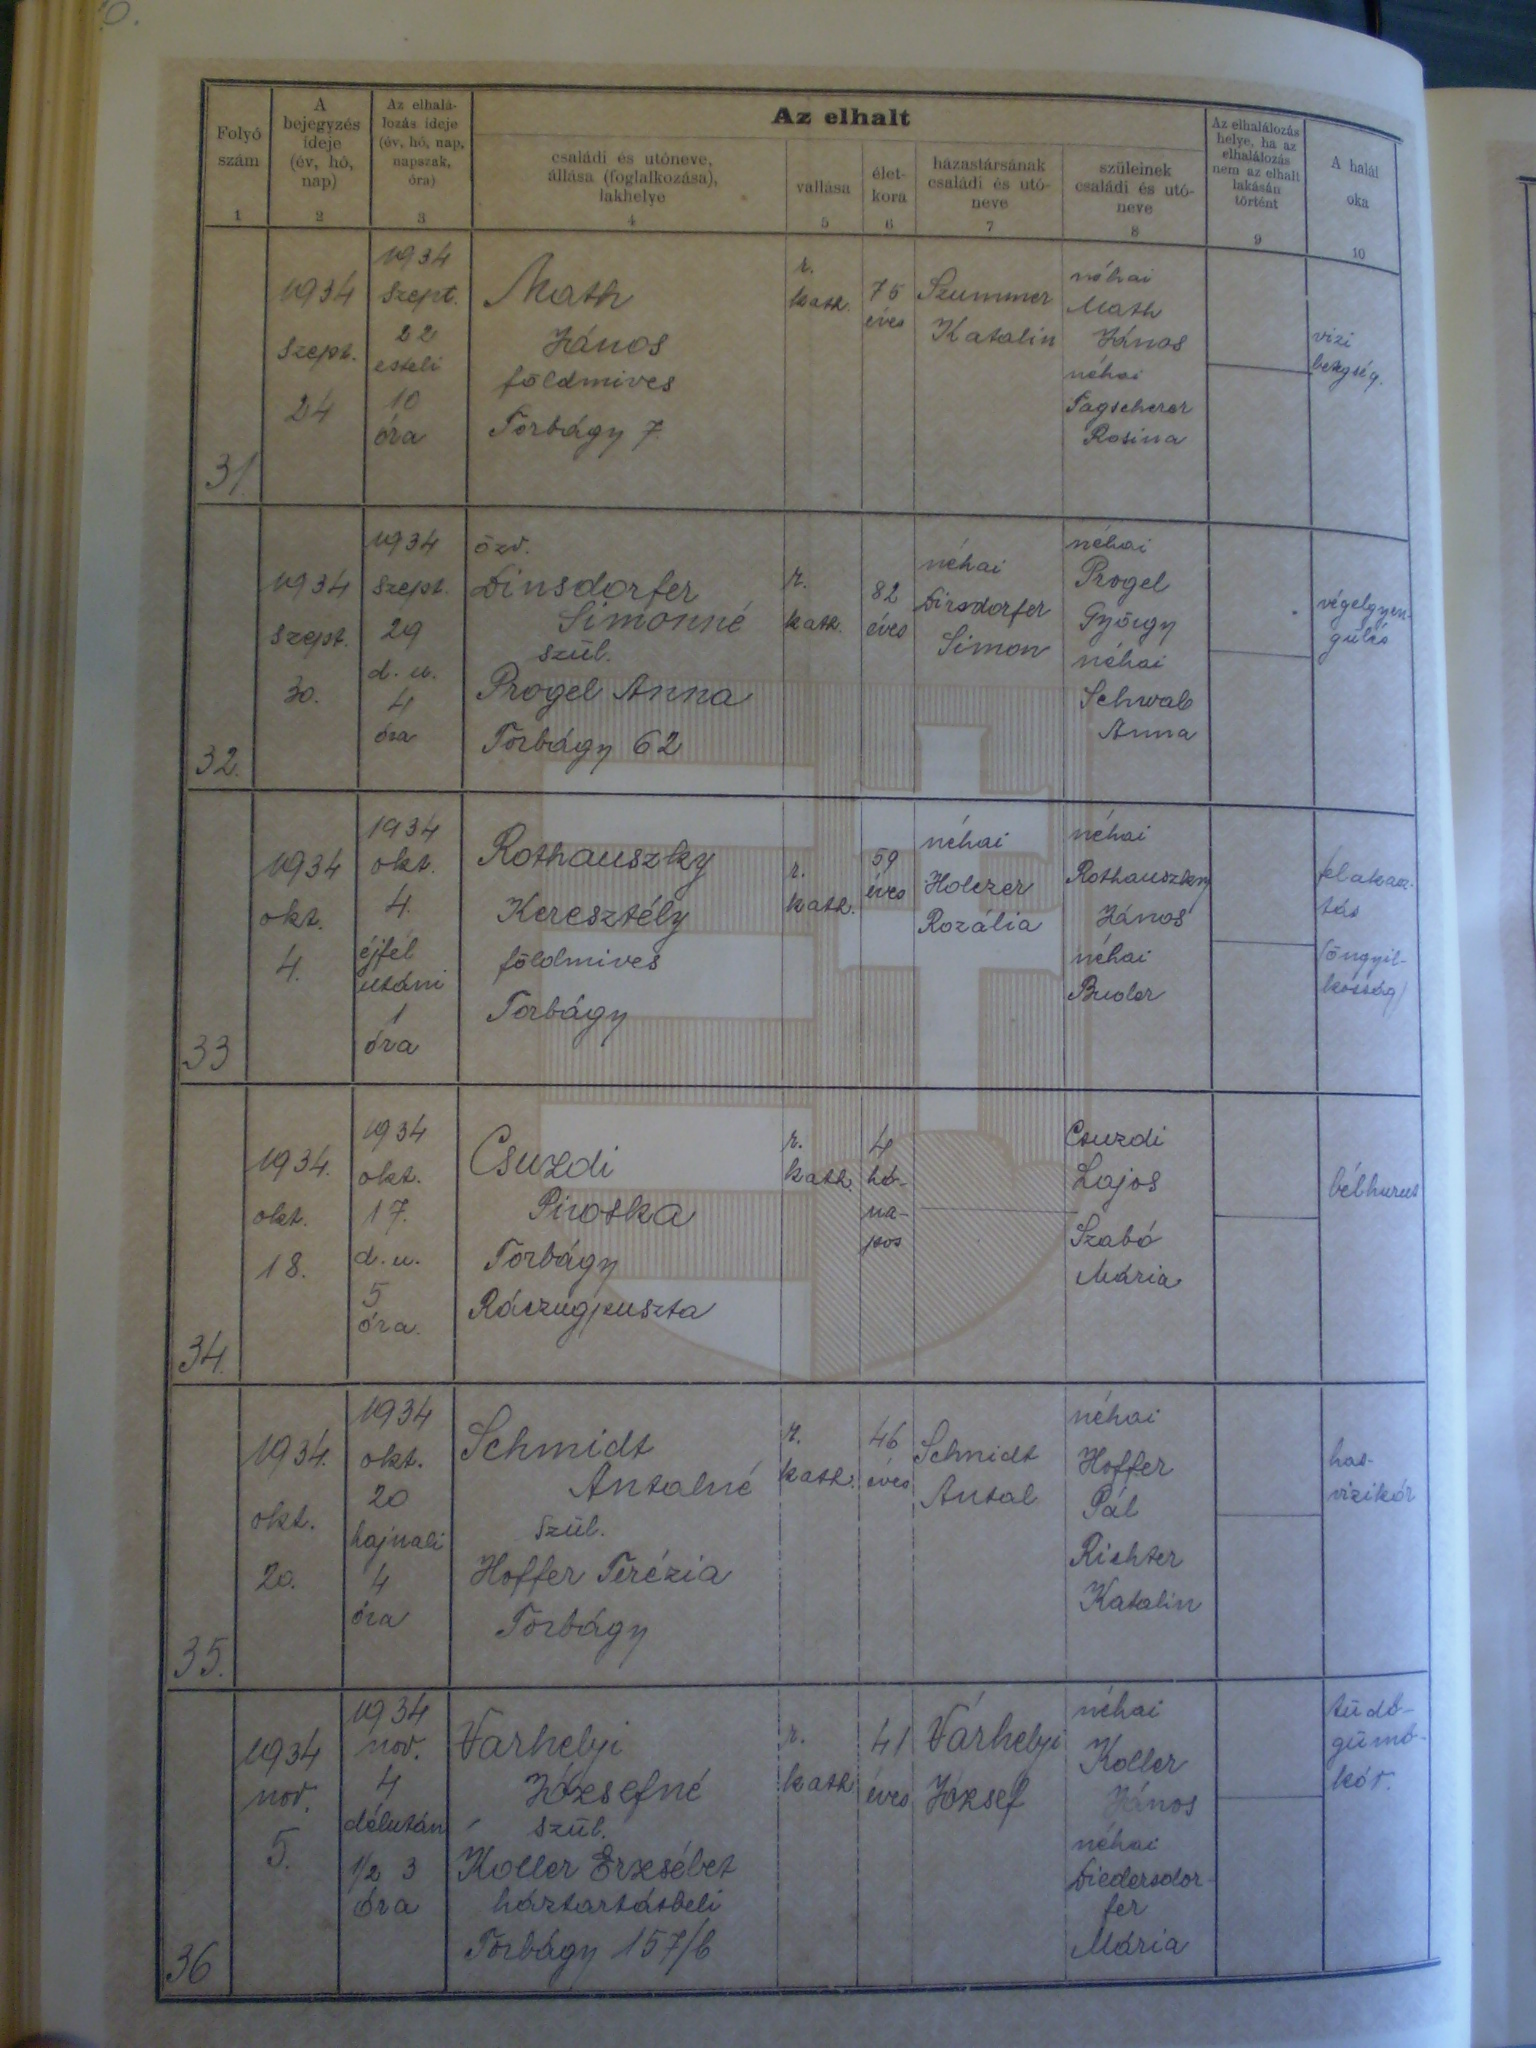 0.
Az elhalt
Folyó
szám
1
A
bejegyzés
ideje
(év, hó,
nap)
2
Az elhalá-
lozás ideje
(év, hó, nap,
napszak,
óra)
3
családi és utóneve,
állása (foglalkozása),
lakhelye
4
vallása
5
élet-
kora
6
házastársának
családi és utó-
neve
7
szüleinek
családi és utó-
neve
8
Az elhalálozás
helye, ha az
elhalálozás
nem az elhalt
lakásán
történt
9
A halál
oka
10
31.
1934
szept.
24
1934
szept.
22
esteli
10
óra
Math
János
földmives
Torbágy 7.
r.
kath.
75
éves
Szummer
Katalin
néhai
Math
János
néhai
Pagscherer
Rosina
vizi
betegség.
32.
1934
szept.
30.
1934
szept.
29
d. u.
4
óra
özv.
Dinsdorfer
Simonné
szül.
Progel Anna
Torbágy 62
r.
kath.
82
éves
néhai
Dinsdorfer
Simon
néhai
Progel
György
néhai
Schwab
Anna
végelgyen-
gülés
33
1934
okt.
4.
1934
okt.
4.
éjfél
utáni
1
óra
Rothauszky
Keresztély
földmives
Torbágy
r.
kath.
59
éves
néhai
Holczer
Rozália
néhai
Rothauszky
János
néhai
Buder
felakasz-
tás
(öngyil-
kosság)
34.
1934.
okt.
18.
1934
okt.
17.
d. u.
5
óra.
Csuzdi
Piroska
Torbágy
Ráczugpuszta
r.
kath.
4
hó-
na-
pos
Csuzdi
Lajos
Szabó
Mária
bélhurut
35.
1934.
okt.
20.
1934
okt.
20
hajnali
4
óra
Schmidt
Antalné
szül.
Hoffer Terézia
Torbágy
r.
kath.
46
éves
Schmidt
Antal
néhai
Hoffer
Pál
Richter
Katalin
has-
vizikór
36
1934
nov.
5.
1934
nov.
4
délután
1/2 3
óra
Várhelyi
Józsefné
szül.
Koller Erzsébet
háztartásbeli
Torbágy 157/b
r.
kath
41
éves
Várhelyi
József
néhai
Koller
János
néhai
Diedersdor-
fer
Mária
tüdő-
gümő-
kór.